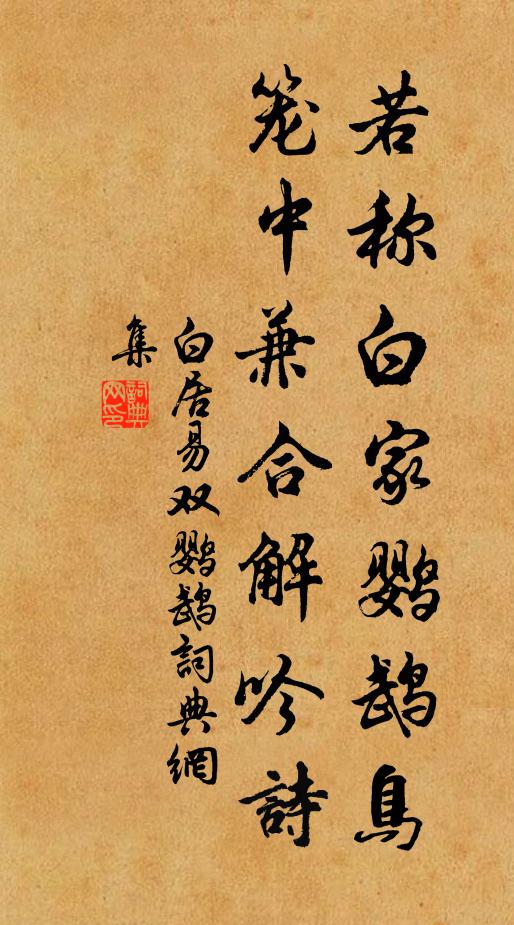 若称白家鹦鹉鳥
笼中兼合解吟詩
白居易双鹦鹉詞典網
集
詞典
网印